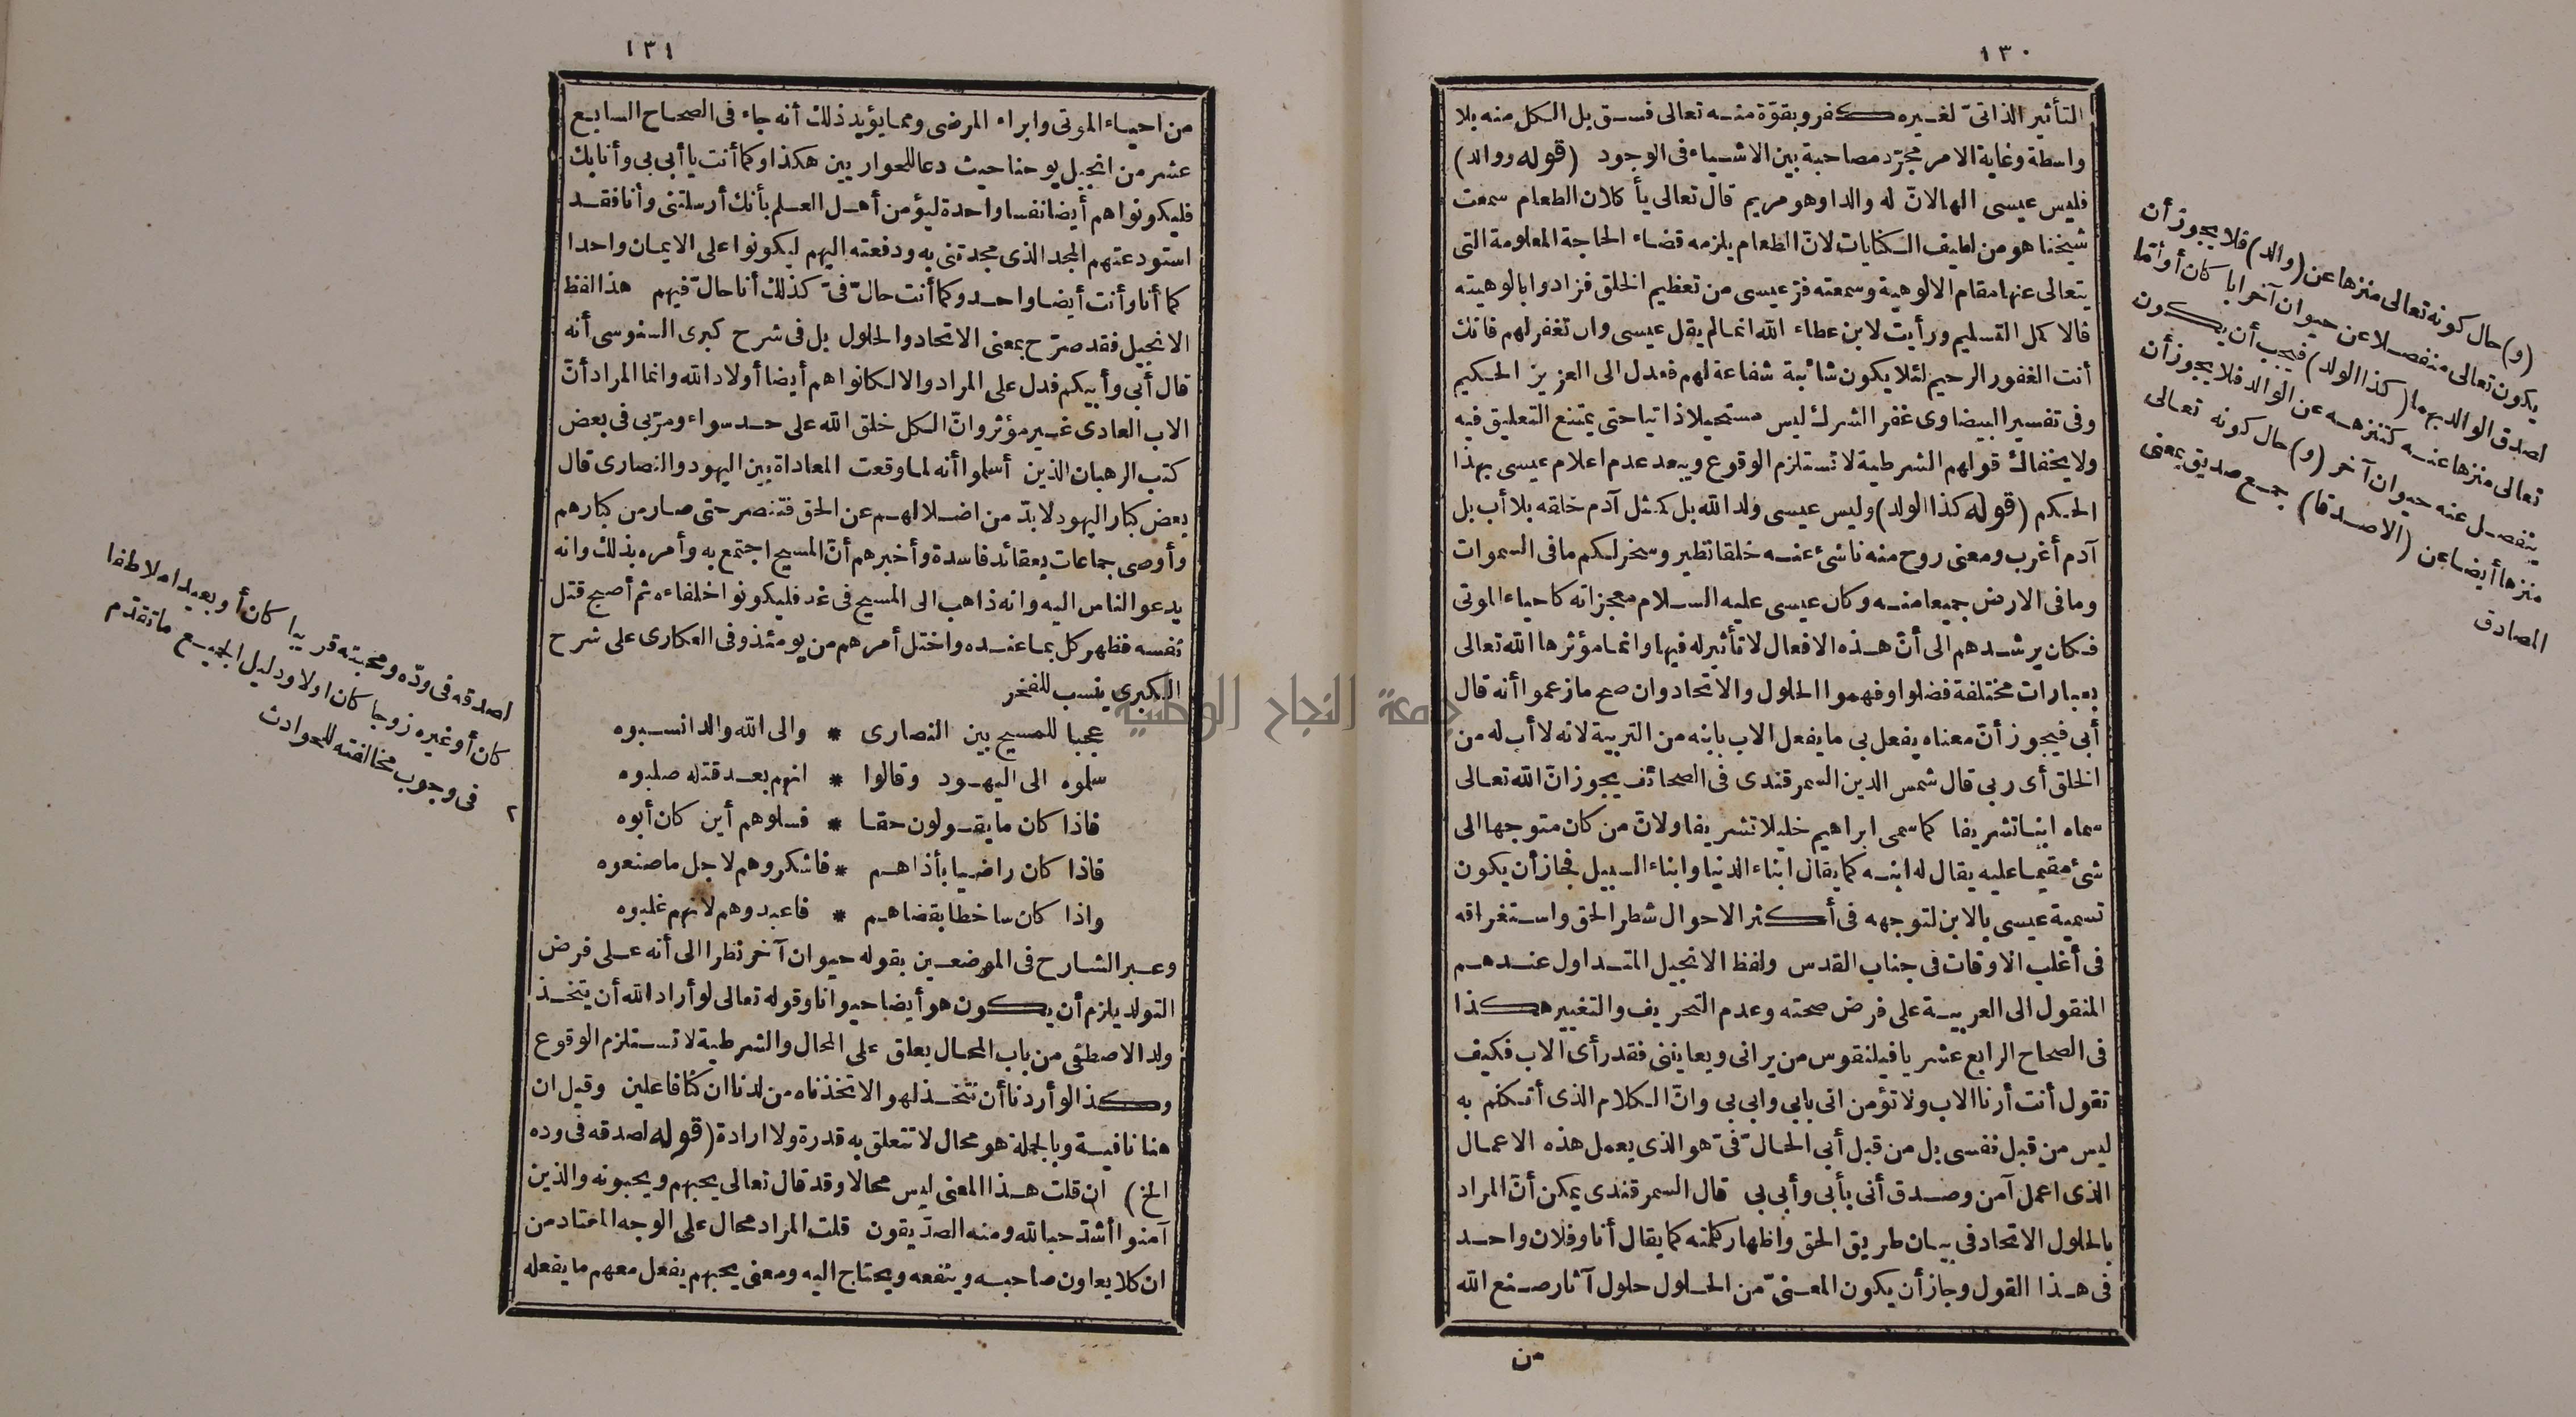 ١٣٠
التأثير الذاتىّ لغيره كفر وبقوّة منه تعالى فسق بل الكل منه بلا
واسطة وغاية الامر مجرّد مصاحبة بين الاشياء فى الوجود (قوله ووالد)
فليس عيسى الها لانّ له والدا وهو مريم قال تعالى يأكلان الطعام سمعت
شيخنا هو من لطيف الكنايات لانّ الطعام يلزمه قضاء الحاجة المعلومة التى
يتعالى عنها مقام الالوهية وسمعته فرّ عيسى من تعظيم الخلق فزادوا بالوهيته
قالا كمل التسليم ورأيت لابن عطاء الله انما لم يقل عيسى وان تغفر لهم فانك
أنت الغفور الرحيم لئلا يكون شائبة شفاعة لهم فعدل الى العزيز الحكيم
وفى تفسير البيضاوى غفر الشرك ليس مستحيلا ذاتيا حتى يمتنع التعليق فيه
ولا يخفاك قولهم الشرطية لا تستلزم الوقوع ويبعد عدم اعلام عيسى بهذا
الحكم (قوله كذا الولد) وليس عيسى ولد الله بل كمثل آدم خلقه بلا أب بل
آدم أغرب ومعنى روح منه ناشئ عنه خلقا نظير وسخر لكم ما فى السموات
وما فى الارض جميعا منه وكان عيسى عليه السلام معجزاته كاحياء الموتى
فكان يرشدهم الى أنّ هذه الافعال لا تأثير له فيها وانما مؤثرها الله تعالى
بعبارات مختلفة فضلوا وفهموا الحلول والاتحاد وان صح ما زعموا أنه قال
أبى فيجوز أنّ معناه يفعل بى ما يفعل الاب بابنه من التربية لانه لا أب له من
الخلق أى ربى قال شمس الدين السمرقندى فى الصحائف يجوز انّ الله تعالى
سماه ابنا تشريفا كما سمى ابراهيم خليلا تشريفا ولانّ من كان متوجها الى
شئ مقيما عليه يقال له ابنه كما يقال ابناء الدنيا وابناء السبيل فجاز أن يكون
تسمية عيسى بالابن لتوجهه فى أكثر الاحوال شطر الحق واستغراقه
فى أغلب الاوقات فى جناب القدس ولفظ الانجيل المتداول عندهم
المنقول الى العربية على فرض صحته وعدم التحريف والتغيير هكذا
فى الصحاح الرابع عشر يا فيلنقوس من يرانى ويعاينى فقد رأى الاب فكيف
تقول أنت أرنا الاب ولا تؤمن انى بابى وابى بى وانّ الكلام الذى أتكلم به
ليس من قبل نفسى بل من قبل أبى الحالّ فىّ هو الذى يعمل هذه الاعمال
الذى اعمل آمن وصدق أنى بأبى وأبى بى قال السمرقندى يمكن أنّ المراد
بالحلول الاتحاد فى بيان طريق الحق واظهار كلمته كما يقال أنا وفلان واحد
فى هذا القول وجاز أن يكون المعنىّ من الحلول حلول آثار صنع الله
من
(و) حال كونه تعالى منزها عن (والد) فلا يجوز أن
يكون تعالى منفصلا عن حيوان آخر ابا كان أو أمّا
لصدق الوالد بهما (كذا الولد) فيجب أن يكون
تعالى منزها عنه كتنزهه عن الوالد فلا يجوز أن
ينفصل عنه حيوان آخر (و) حال كونه تعالى
منزها أيضا عن (الاصدقا) جمع صديق بمعنى
المصادق
١٣١
من احياء الموتى وابراء المرضى ومما يؤيد ذلك أنه جاء فى الصحاح السابع
عشر من انجيل يوحنا حيث دعا للحواريين هكذا وكما أنت يا أبى بى وأنا بك
فليكونوا هم أيضا نفسا واحدة ليؤمن أهل العلم بأنك أرسلتنى وأنا فقد
استودعتهم المجد الذى مجدتنى به ودفعته اليهم ليكونوا على الايمان واحدا
كما أنا وأنت أيضا واحد وكما أنت حالّ فىّ كذلك أنا حالّ فيهم هذا لفظ
الانجيل فقد صرّح بمعنى الاتحاد والحلول بل فى شرح كبرى السنوسى أنه
قال أبى وأبيكم فدل على المراد والا لكانوا هم أيضا أولاد الله وانما المراد أنّ
الاب العادى غير مؤثر وانّ الكل خلق الله على حد سواء ومرّ بى فى بعض
كتب الرهبان الذين أسلموا أنه لما وقعت المعاداة بين اليهود والنصارى قال
بعض كبار اليهود لا بدّ من اضلالهم عن الحق فتنصر حتى صار من كبارهم
وأوصى جماعات بعقائد فاسدة وأخبرهم أنّ المسيح اجتمع به وأمره بذلك وانه
يدعو الناس اليه وانه ذاهب الى المسيح فى غد فليكونوا خلفاءه ثم أصبح قتل
نفسه فظهر كل بما عنده واختل أمرهم من يومئذ وفى العكارى على شرح
الكبرى ينسب للفخر
عجبا للمسيح بين النصارى * والى الله والدا نسبوه
سلموه الى اليهود وقالوا * انهم بعد قتله صلبوه
فاذا كان ما يقولون حقا * فسلوهم أين كان أبوه
فاذا كان راضيا بأذاهم * فاشكروهم لاجل ما صنعوه
واذا كان ساخطا بقضاهم * فاعبدوهم لانهم غلبوه
وعبر الشارح فى الموضعين بقوله حيوان آخر نظرا الى أنه على فرض
التولد يلزم أن يكون هو أيضا حيوانا وقوله تعالى لو أراد الله أن يتخذ
ولدا لاصطفى من باب المحال يعلق على المحال والشرطية لا تستلزم الوقوع
وكذا لو أردنا أن نتخذ لهوا لاتخذناه من لدنا ان كنا فاعلين وقيل ان
هنا نافية وبالجملة هو محال لا تتعلق به قدرة ولا ارادة (قوله لصدقه فى وده
الخ) ان قلت هذا المعنى ليس محالا وقد قال تعالى يحبهم ويحبونه والذين
آمنوا أشدّ حبا لله ومنه الصدّيقون قلت المراد محال على الوجه المعتاد من
ان كلا يعاون صاحبه وينفعه ويحتاج اليه ومعنى يحبهم يفعل معهم ما يفعله
لصدقه فى ودّه ومحبته قريبا كان أو بعيدا ملاطفا
كان أو غيره زوجا كان اولا ودليل الجميع ما تقدم
٢ فى وجوب مخالفته للحوادث
جامعة النجاح الوطنية